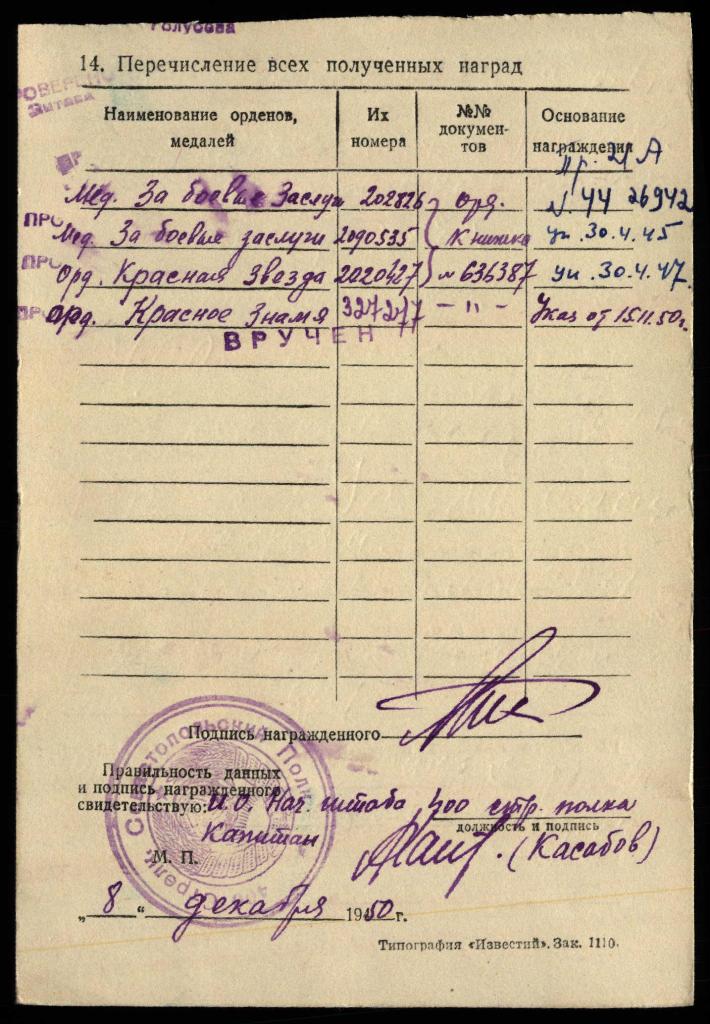 Голубева
14. Перечисление всех полученных наград
Наименование орденов, медалей
Их номера
№№ документов
Основание награждения
пр. 21 А
Мед. За боевые Заслуги 202826 Орд. N. 44 26942
Мед. За боевые заслуги 2090535 Книжка ук. 30.4.45
Орд. Красная Звезда 2020427 № 636387 ук. 30.4.47.
Орд. Красное Знамя 327277 — " — Указ от 15.11.50г.
ВРУЧЕН
Подпись награжденного
Правильность данных
и подпись награжденного
свидетельствую: И.О. Нач. штаба 400 стр. полка
должность и подпись
Капитан (Касабов)
М. П.
„ 8 “ декабря 1950 г.
Типография «Известий». Зак. 1110.